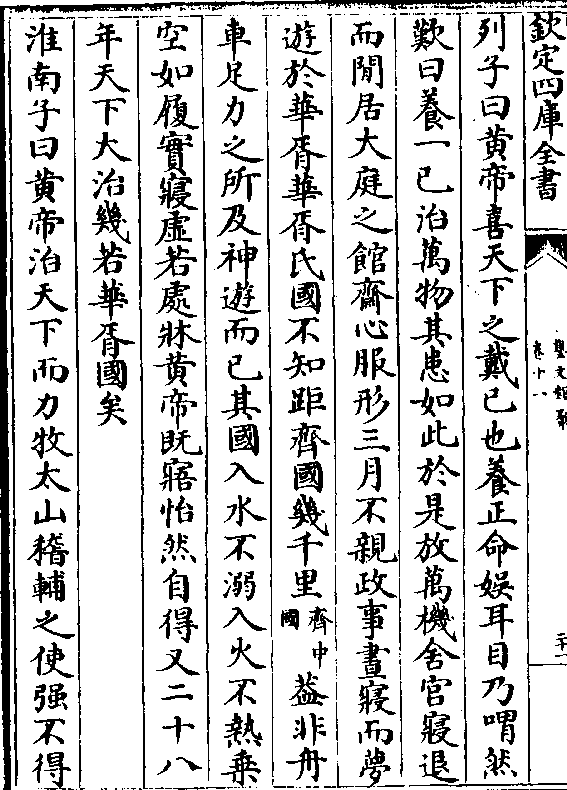 欽定四庫全書
卷十一
列子曰黄帝喜天下之戴已也養正命娛耳目乃喟然
歎曰養一已治萬物其患如此於是放萬機舍官寢退
而閒居大庭之館齋心服形三月不親政事晝寢而夢
遊於華胥華胥氏國不知距齊國幾千里齊中國葢非舟
車足力之所及神遊而已其國入水不溺入火不熱乗
空如履實寢虚若處牀黄帝既寤怡然自得又二十八
年天下大治幾若華胥國矣
淮南子曰黄帝治天下而力牧太山稽輔之使强不得